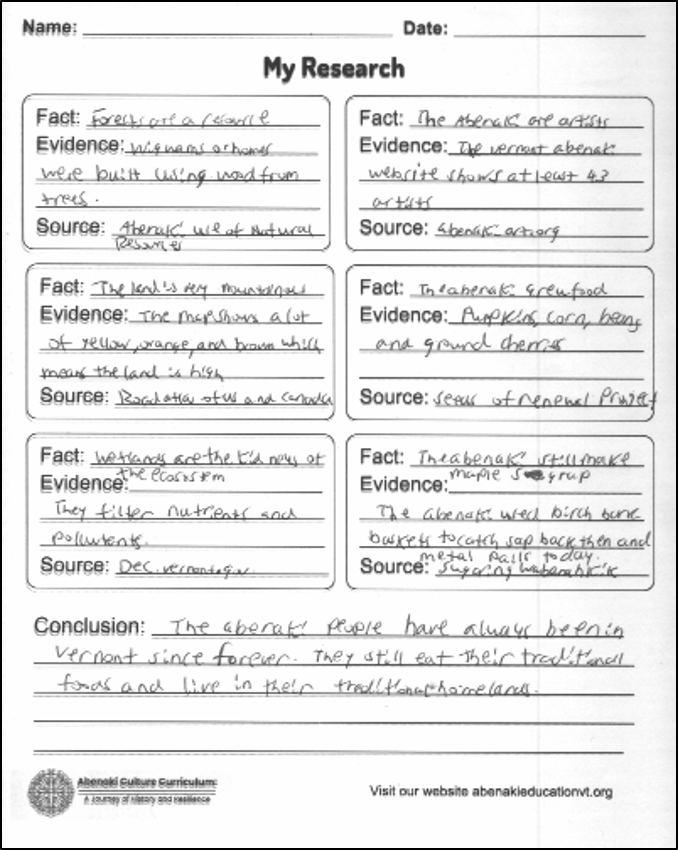 Name: Date:
My Research
Fact: Forests are a resource
Evidence: Wigwams or homes
were built using wood from
trees.
Source: Abenaki use of Natural
Resources
Fact: The Abenaki are artists
Evidence: The vermont abenaki
website shows at least 43
artists
Source: abenaki art.org
Fact: The land is very mountainous
Evidence: The map shows a lot
of yellow, orange, and brown which
means the land is high
Source: Road atlas of us and Canada
Fact: The abenaki grew food
Evidence: Pumpkins, corn, beans
and ground cherries
Source: seeds of renewal Project
Fact: wetlands are the kidneys of
the ecosystem
Evidence:
They filter nutrients and
pollutents.
Source: Dec. vermont.gov
Fact: The abenaki still make
maple syrup
Evidence:
The abenaki used birch bark
baskets to catch sap back then and
metal pails today.
Source: sugaring
Conclusion: The abenaki people have always been in
vermont since forever. They still eat their traditional
foods and live in their traditional homelands.
Abenaki Culture Curriculum:
A Journey of History and Resilience
Visit our website abenakieducationvt.org